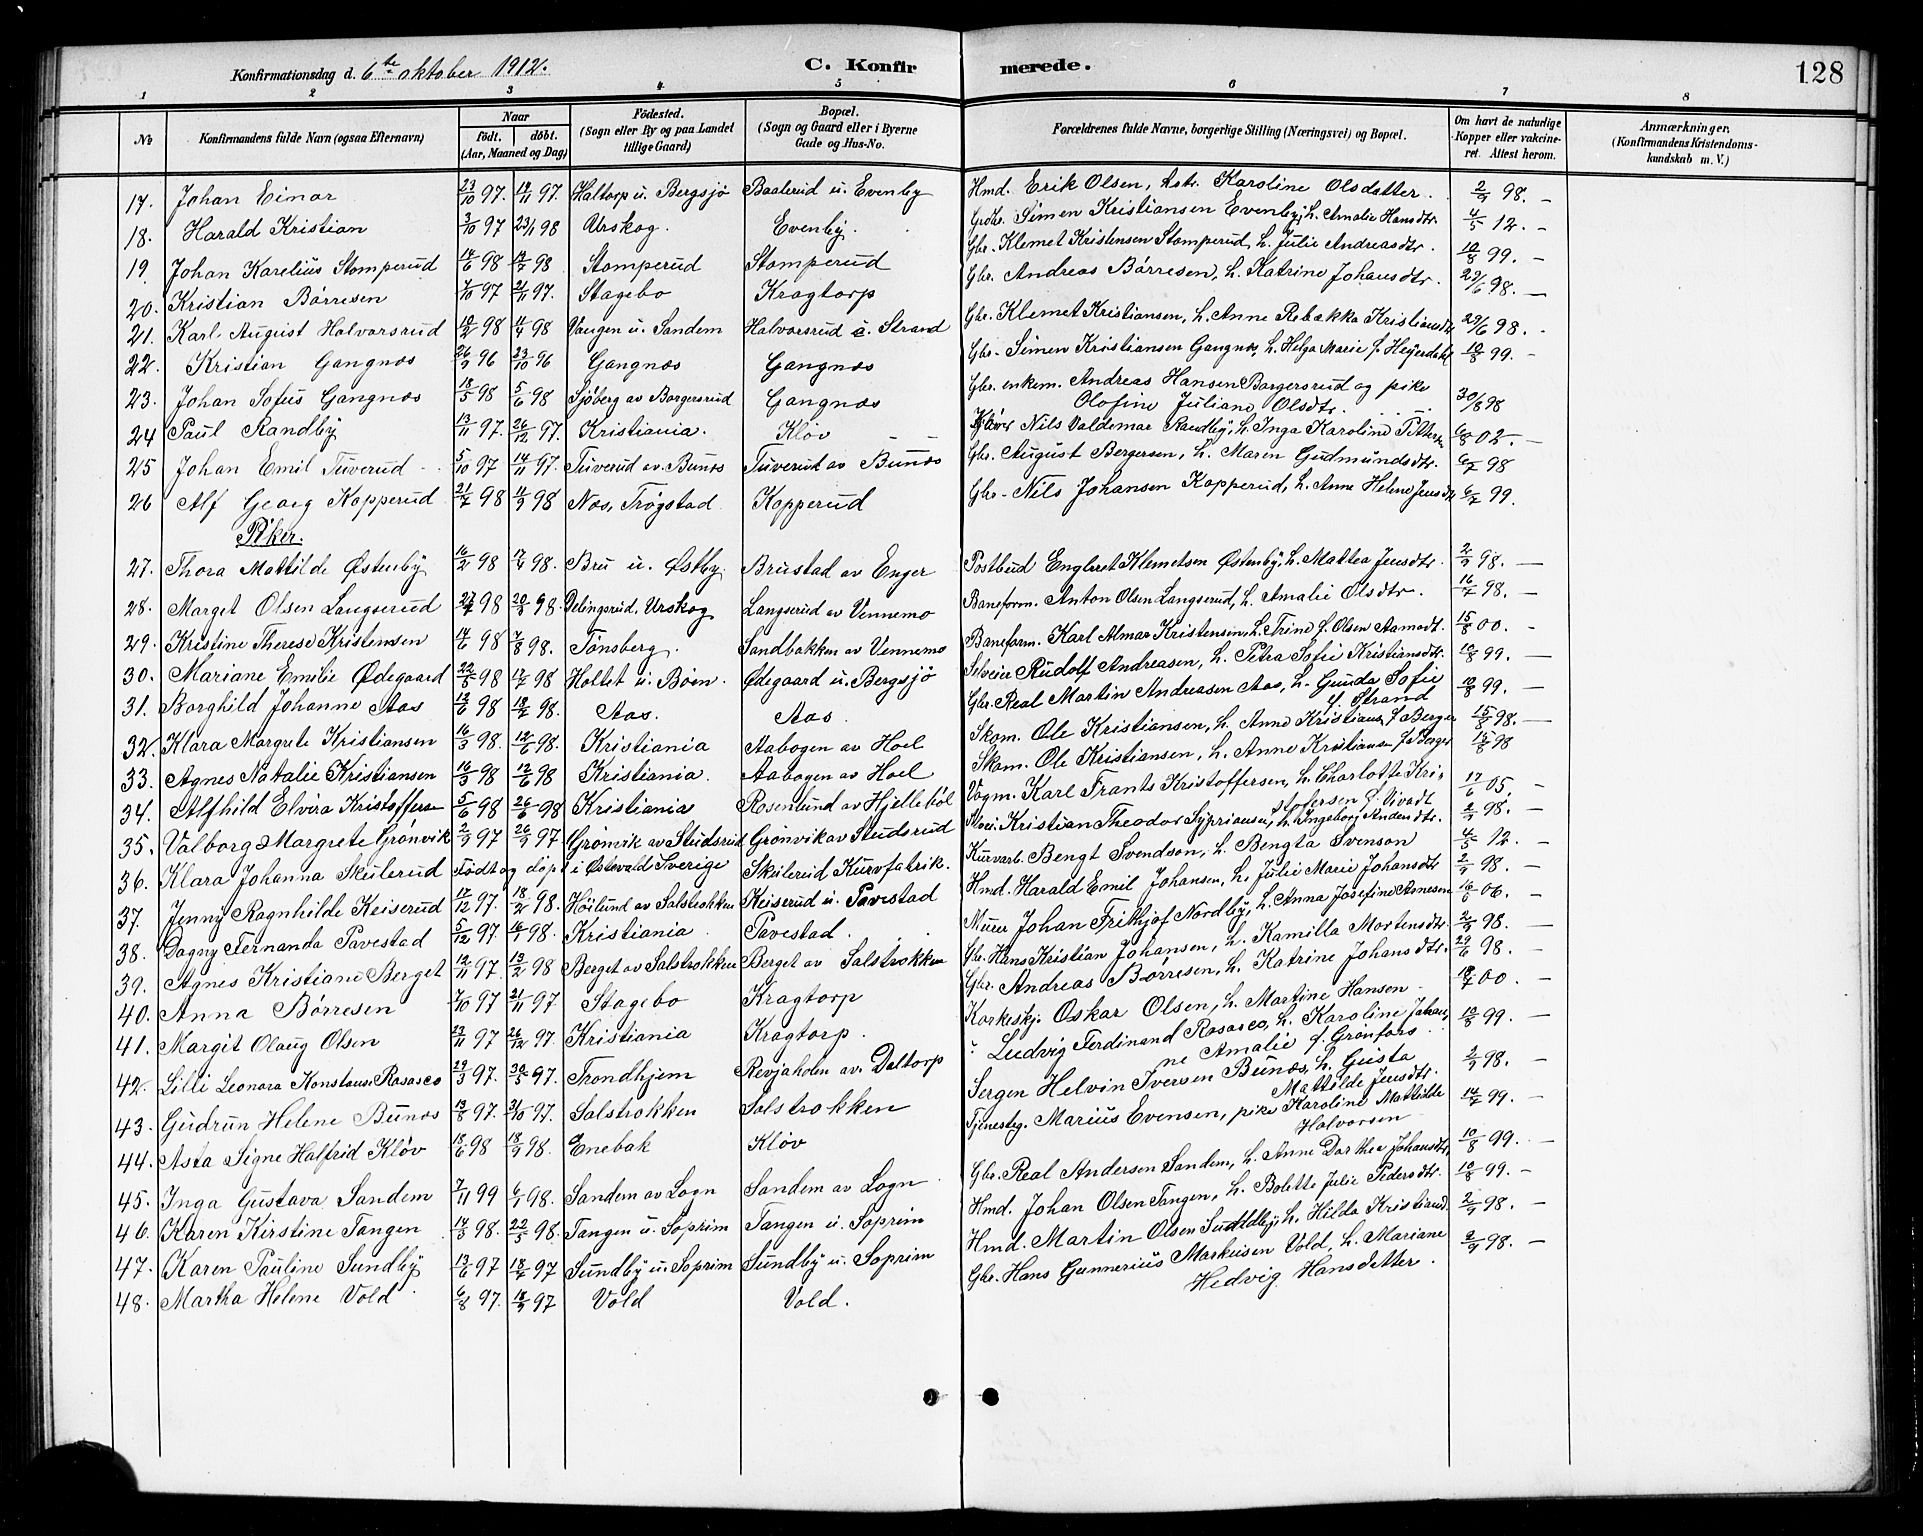 Konfirmationsdag d. 6te oktober 1912.
C. Konfirmerede.
128
1 2 3 4 5 6 7 8
№
Konfirmandens fulde Navn (ogsaa Efternavn)
Naar født. døbt. (Aar, Maaned og Dag)
Fødested. (Sogn eller By og paa Landet tillige Gaard)
Bopæl. (Sogn og Gaard eller i Byerne Gade og Hus-No.
Forældrenes fulde Navne, borgerlige Stilling (Næringsvei) og Bopæl.
Om havt de naturlige Kopper eller vakcineret. Attest herom.
Anmærkninger. (Konfirmandens Kristendomskundskab m. V.)
17. Johan Einar 23/10 97. 14/11 97. Haltorp u. Bergsjø Baalerud u. Evenby Hmd. Erik Olsen, Karoline Olsdatter. 2/9 98. –
18. Harald Kristian 3/10 97 23/1 98 Urskog. Evenby. Simen Kristiansen Evenby, h. Amalie Hansdtr. 4/5 12. –
19. Johan Karelius Stomperud 14/6 98 98 Stomperud Stomperud Gbr. Klemet Kristensen Stomperud, h. Julie Andreasdtr. 10/8 99. –
20. Kristian Børresen 7/10 97 21/11 97. Stagebo Kragtorp Gbr. Andreas Børresen, h. Katrine Johansdtr. 29/6 98. –
21. Karl August Halvorsrud 98 98 Vangen u. Sandem Halvorsrud u. Strand Gbr. Klemet Kristiansen, h. Anne Rebækka Kristiansdtr 29/6 98. -
22. Kristian Gangnæs 96 23/10 96 Gangnæs Gangnæs Gbr. Simen Kristiansen Gangnæs, h. Helga Marie f. Heyerdahl 10/8 99. -
23. Johan Sofus Gangnæs 18/5 98 5/6 98 Sjøberg av Borgersrud Gangnæs Gbr. enkem. Andreas Hansen Borgersrud og pike
Olofine Juliane Olsdtr. 30/8 98
24 Paul Randby 13/11 97. 26/12 97. Kristiania. Kløv Nils Valdemar Randby, h. Inga Karoline 6/8 02. –
25 Johan Emil Tuverud 5/10 97 14/11 97. Tuverud av Bunæs Tuverud av Bunæs Gbr. August Bergersen, h. Maren Gudmundsdtr. 6/7 98
26 Alf Georg Kopperud 21/7 98 4/9 98 Næs, Trøgstad Kopperud Gbr. Nils Johansen Kopperud, h. Anne Helene Jensdtr 6/7 99.
Piker.
27. Thora Mathilde Østenby 16/2 98 17/4 98. Bru u. Østby. Brustad av Enger Postbud Englret Klemetsen Østenby, h. Mathea Jensdtr. 2/9 98. –
28. Marget Olsen Langserud 98 20/3 98 Delingsrud, Urskog Langserud av Vennemo Baneform. Anton Olsen Langserud, h. Amalie Olsdtr. 16/7 98. –
29. Kristine Therese Kristensen 14/6 98 7/8 98. Tønsberg. Sandbakken av Vennemo Baneform. Karl Almar Kristensen, h. Trine f. Olsen Aamodt. 15/8 00. -
30. Mariane Emilie Ødegaard 22/5 98 17/7 98 Holtet u. Bøen. Ødegaard u. Bergsjø Selveier Rudolf Andreasen, h. Petra Sofie Kristiansdtr. 10/8 99. –
31. Borghild Johanne Aas 98 98. Aas. Aas. Gbr. Real Martin Andreasen Aas, h. Gunda Sofie
f. Strand 10/8 99. –
32. Klara Margrete Kristiansen 16/3 98. 12/6 98. Kristiania Aabogen av Hoel Skom. Ole Kristiansen, h. Anne Kristians f. Berger 15/8 98. –
33. Agnes Natalie Kristiansen 16/3 98 12/6 98 Kristiania. Aabogen av Hoel Skom. Ole Kristiansen, h. Anne Kristianse f. Berger 15/8 98
34. Alfhild Elvira Kristoffersen 5/6 98 26/6 98 Kristiania Rosenlund av Hjellebøl Vogm. Karl Frants Kristoffersen, h. Charlotte Kri-
stofersen f. Sivadt 17/6 05. –
35. Valborg Margrete Grønvik 2/9 97 26/9 97 Grønvik av Studsrud Grønvik av Studsrud Kristian Theodor Sypriansen, h. Ingeborg Andersdtr. 2/9 98. -
36. Klara Johanna Skulerud Født og døpt i Østevald Sverige Skulerud Kurvfabrik. Kurvarb. Bengt Svendson, h. Bengta Svenson 4/5 12. –
37. Jenny Ragnhilde Keiserud 17/12 97. 18/2 98. Høilund av Salstrokken Keiserud u. Pavestad Hmd. Harald Emil Johansen, h. Julie Marie Johansdtr 2/9 98. –
38. Dagny Fernanda Pavestad 5/12 97. 98. Kristiania Pavestad. Murer Johan Frithjof Nordby, h. Anna Josefine Arnesen 16/6 06. –
39. Agnes Kristiane Berget 12/11 97. 13/2 98 Berget av Salstrokken Berget av Salstrokken Gbr. Hans Kristian Johansen, h. Kamilla Mortensdtr. 2/9 98. –
40. Anna Børresen 7/10 97 21/11 97 Stagebo Kragtorp Gbr. Andreas Børresen, h. Katrine Johansdtr. 29/6 98.
41. Margit Olaug Olsen 97 26/12 97. Kristiania Kragtorp. Korkeskj. Oskar Olsen, h. Martine Hansen 00. –
42. Lilli Leonora Konstanse Rosasco 29/3 97. 30/5 97. Trondhjem Revjaholm av Daltorp Ludvig Ferdinand Rosasco, h. Karoline Johan-
ne Amalie f. Grønfors 10/8 99. –
43. Gudrun Helene Bunæs 13/8 97. 31/10 97. Salstrokken Salstrokken Sergen Helvin Iversen Bunæs, h. Gusta
Mathilde Jensdtr. 2/9 98. –
44. Asta Signe Halfrid Kløv 18/6 98 18/9 98. Enebak Kløv Tjenesteg. Marius Evensen, pike Karoline Mathilde
Halvorsen 14/7 99. –
45. Inga Gustava Sandem 7/11 99 6/1 98. Sandem av Logn Sandem av Logn Gbr. Real Andersen Sandem, h. Anne Dorthea Johansdtr. 10/8 99. –
46. Karen Kirstine Tangen 14/3 98. 22/5 98. Tangen u. Soprim Tangen u. Soprim Hmd. Johan Olsen Tangen, h. Bolette Julie Pedersdtr. 10/8 99. –
47. Karen Pauline Sundby 13/6 97 18/7 97 Sundby u. Soprim Sundby u. Soprim Hmd. Martin Olsen Sundby, h. Hilda Kristiansd. 2/9 98. –
48. Martha Helene Vold 6/8 97. 97 Vold Vold. Gbr. Hans Gunnerius Markusen Vold, h. Mariane
Hedvig Hansdatter. 2/9 98. –